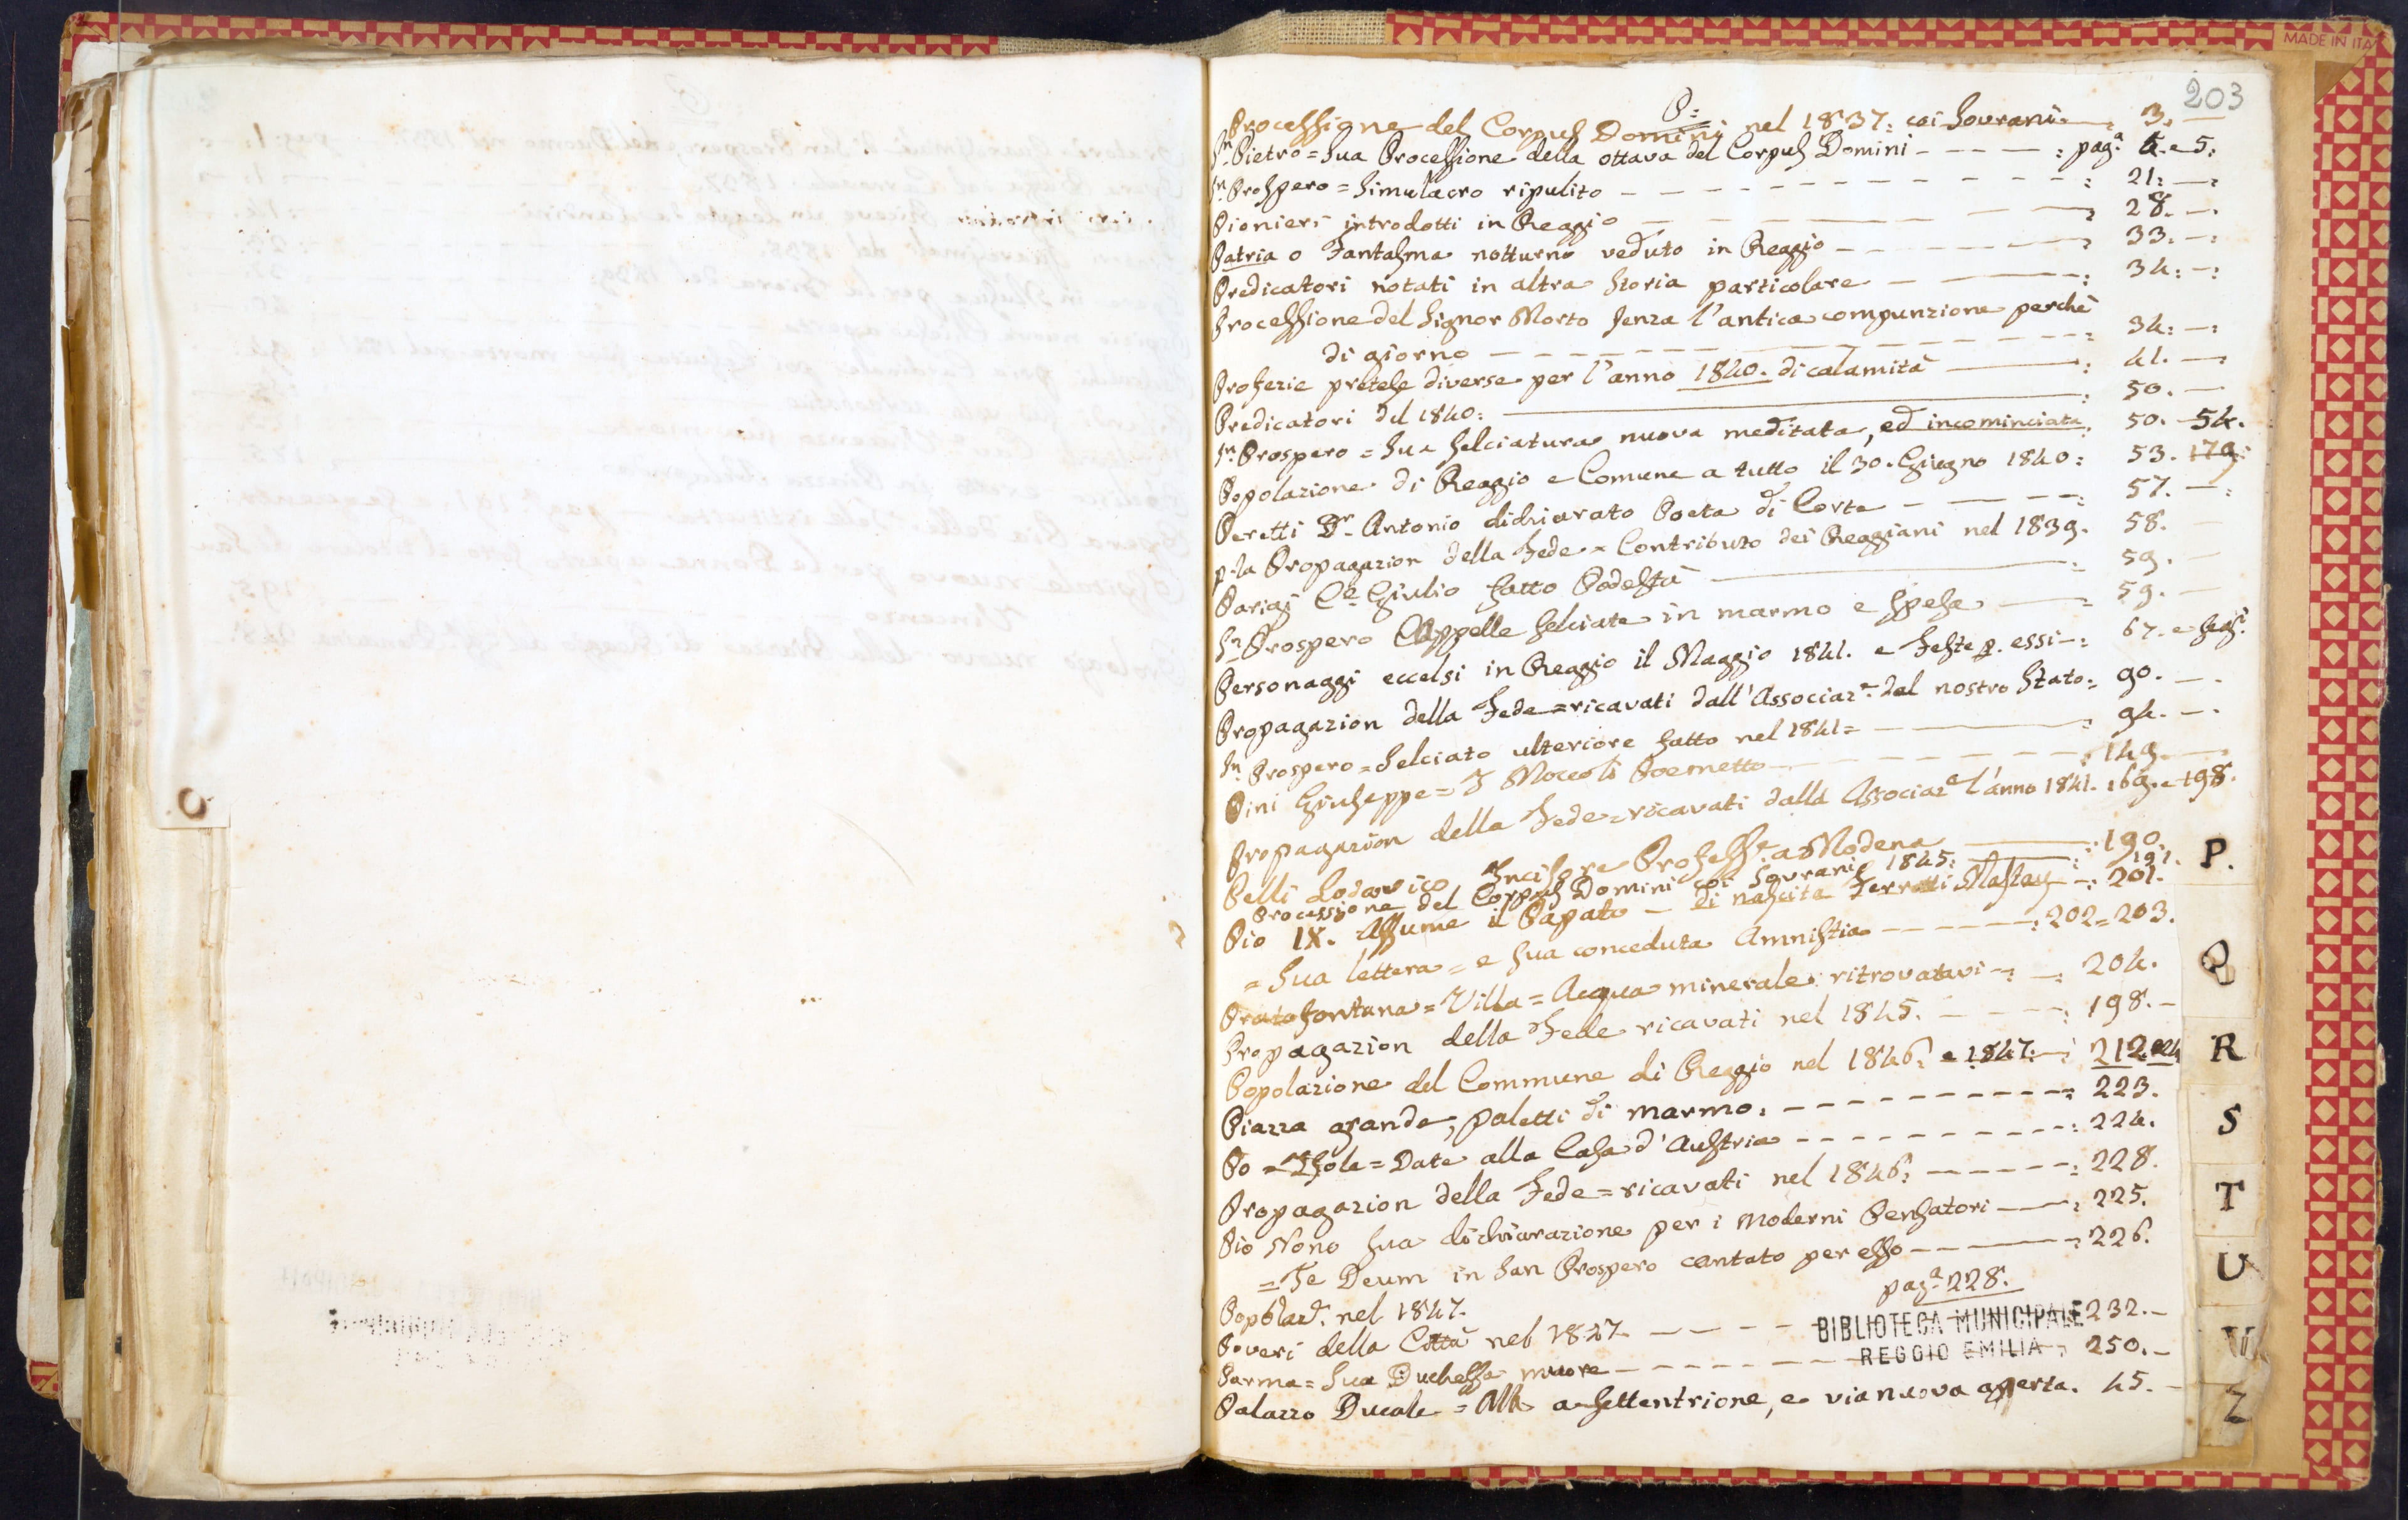 MADE IN ITA
203
P:
Processione del Corpus Domini nel 1837: coi Sovrani — : 3. —
Sn Pietro = Sua Processione della ottava del Corpus Domini - - - — : paga 4. e 5:
Sn Prospero = Simulacro ripulito — - - - - - : 21: — :
Pionieri introdotti in Reggio — - - — : 28. — .
Patria o Fantasma notturno veduto in Reggio - - - — : 33. — :
Predicatori notati in altra Storia particolare — — : 34: — :
Processione del Signor Morto senza l'antica compunzione perchè
di giorno — - - - - - : 34: — :
Profezie pretese diverse per l'anno 1840. di calamità — : 41. — :
Predicatori del 1840: — : 50. —
Sn Prospero = Sua selciatura nuova meditata, ed incominciata. 50. - 54.
Popolazione di Reggio e Comune a tutto il 30. Giugno 1840: 53. 179:
Peretti Dr Antonio dichiarato Poeta di Corte - — - — : 57. — :
p. la Propagazion della Fede = Contributo dei Reggiani nel 1839. 58. —
Parigi Ce Giulio fatto Podestà — : 59. —
Sn Prospero Cappelle selciate in marmo e spese — : 59. —
Personaggi eccelsi in Reggio il Maggio 1841. e Feste p. essi — : 67. e segi.
Propagazion della Fede = ricavati dall'Associaze del nostro Stato: 90. — .
Sn Prospero = Selciato ulteriore fatto nel 1841 = — : 94. — .
Pini Giuseppe = I Moccoli Poemetto - - - - : 149. —
Propagazion della Fede = ricavati dalla Associaze l'anno 1841. 169. e 198.
Pelli Lodovico Incisore Professe a Modena — : 190.
Processione del Corpus Domini coi Sovrani 1845: — : 191.
Pio IX. Assume il Papato — di nascita Ferretti Mastay — : 201.
= Sua lettera = e sua conceduta Amnistia - - - - : 202 = 203.
Pratofontana = Villa = Acqua minerale ritrovatavi - : — : 204.
Propagazion della Fede ricavati nel 1845. — - - : 198. —
Popolazione del Commune di Reggio nel 1846: e 1847: — : 212
Piazza grande, paletti di marmo. - - - - - - : 223.
Po = Isole = Date alla Casa d'Austria - - - - - - : 224.
Propagazion della Fede = ricavati nel 1846: - - - - : 228.
Pio Nono sua dichiarazione per i Moderni Pensatori — : 225.
= Te Deum in San Prospero cantato per esso - - - — : 226.
Popolaze. nel 1847. paga 228.
Poveri della Città nel 1847 — - - - 232. —
Parma = Sua Duchessa muore — - - - - : 250. —
Palazzo Ducale = a settentrione, e via nuova aperta. 45. —
BIBLIOTECA MUNICIPALE
REGGIO EMILIA
P.
Q
R
S
T
U
V
Z